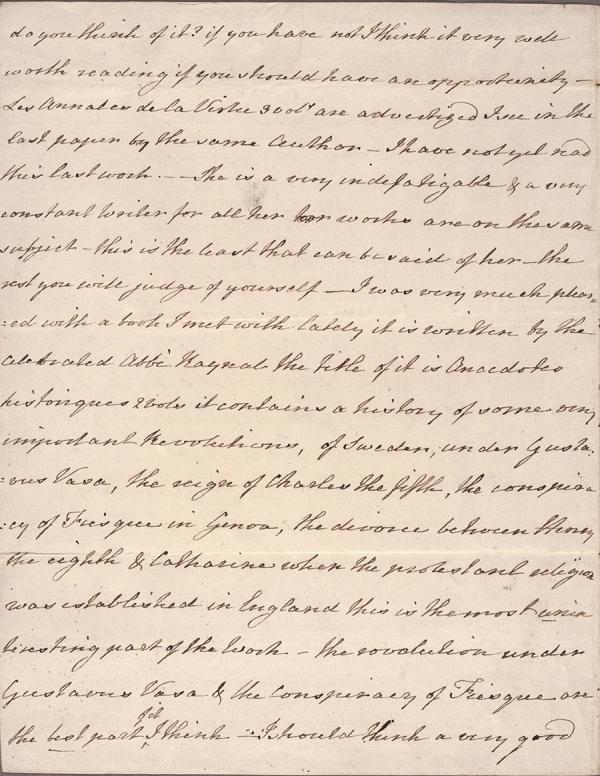 do you think of it? if you have not I think it very well
worth reading if you should have an opportunity –
Les Annales de la Virtu 3 vols are advertized I see in the
last paper by the same Author – I have not yet read
this last work. – – She is a very indefatigable & a very
constant writer for all her works are on the same
subject – this is the least that can be said of her – the
rest you will judge of yourself – I was very much pleas=
=ed with a book I met with lately it is written by the
celebrated Abbé Raynal the title of it is Anecdotes
historiques 2 vols it contains a history of some very
important Revolutions, of Sweden, under Gusta=
=vus Vasa, the reign of Charles the fifth, the conspira
=cy of Fiesque in Genoa, the divorce between Henry
the eighth & Catharine when the protestant religion
was established in England this is the most unin
teresting part of the work – the revolution under
Gustavus Vasa & the conspiracy of Fiesque are
the best part of it I think – I should think a very good